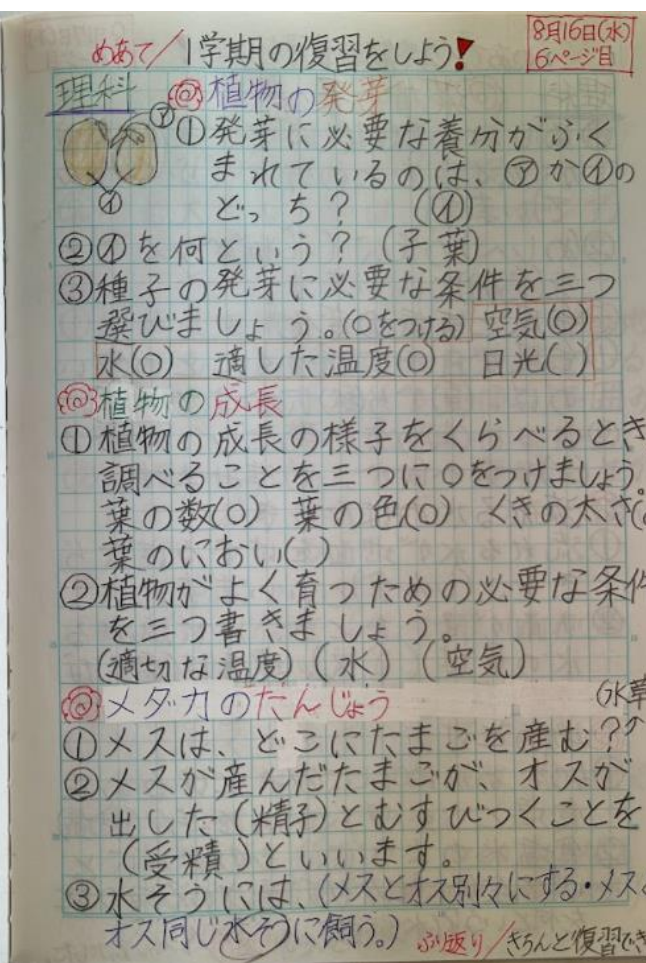 8月16日(水)
6ページ目
めあて/1学期の復習をしよう!
理科 ◎植物の発芽
㋐
㋑
①発芽に必要な養分がふく
まれているのは、㋐か㋑の
どっち? (㋑)
②㋑を何という? (子葉)
③種子の発芽に必要な条件を三つ
選びましょう。(○をつける) 空気(○)
水(○) 適した温度(○) 日光( )
◎植物の成長
①植物の成長の様子をくらべるとき
調べることを三つに○をつけましょう。
葉の数(○) 葉の色(○) くきの太さ(○
葉のにおい( )
②植物がよく育つための必要な条件
を三つ書きましょう。
(適切な温度) (水) (空気)
◎メダカのたんじょう
(水草
①メスは、どこにたまごを産む?
②メスが産んだたまごが、オスが
出した(精子)とむすびつくことを
(受積)といいます。
③水そうには、(メスとオス別々にする・メスと
オス同じ水そうに飼う。)
ふり返り/きちんと復習でき